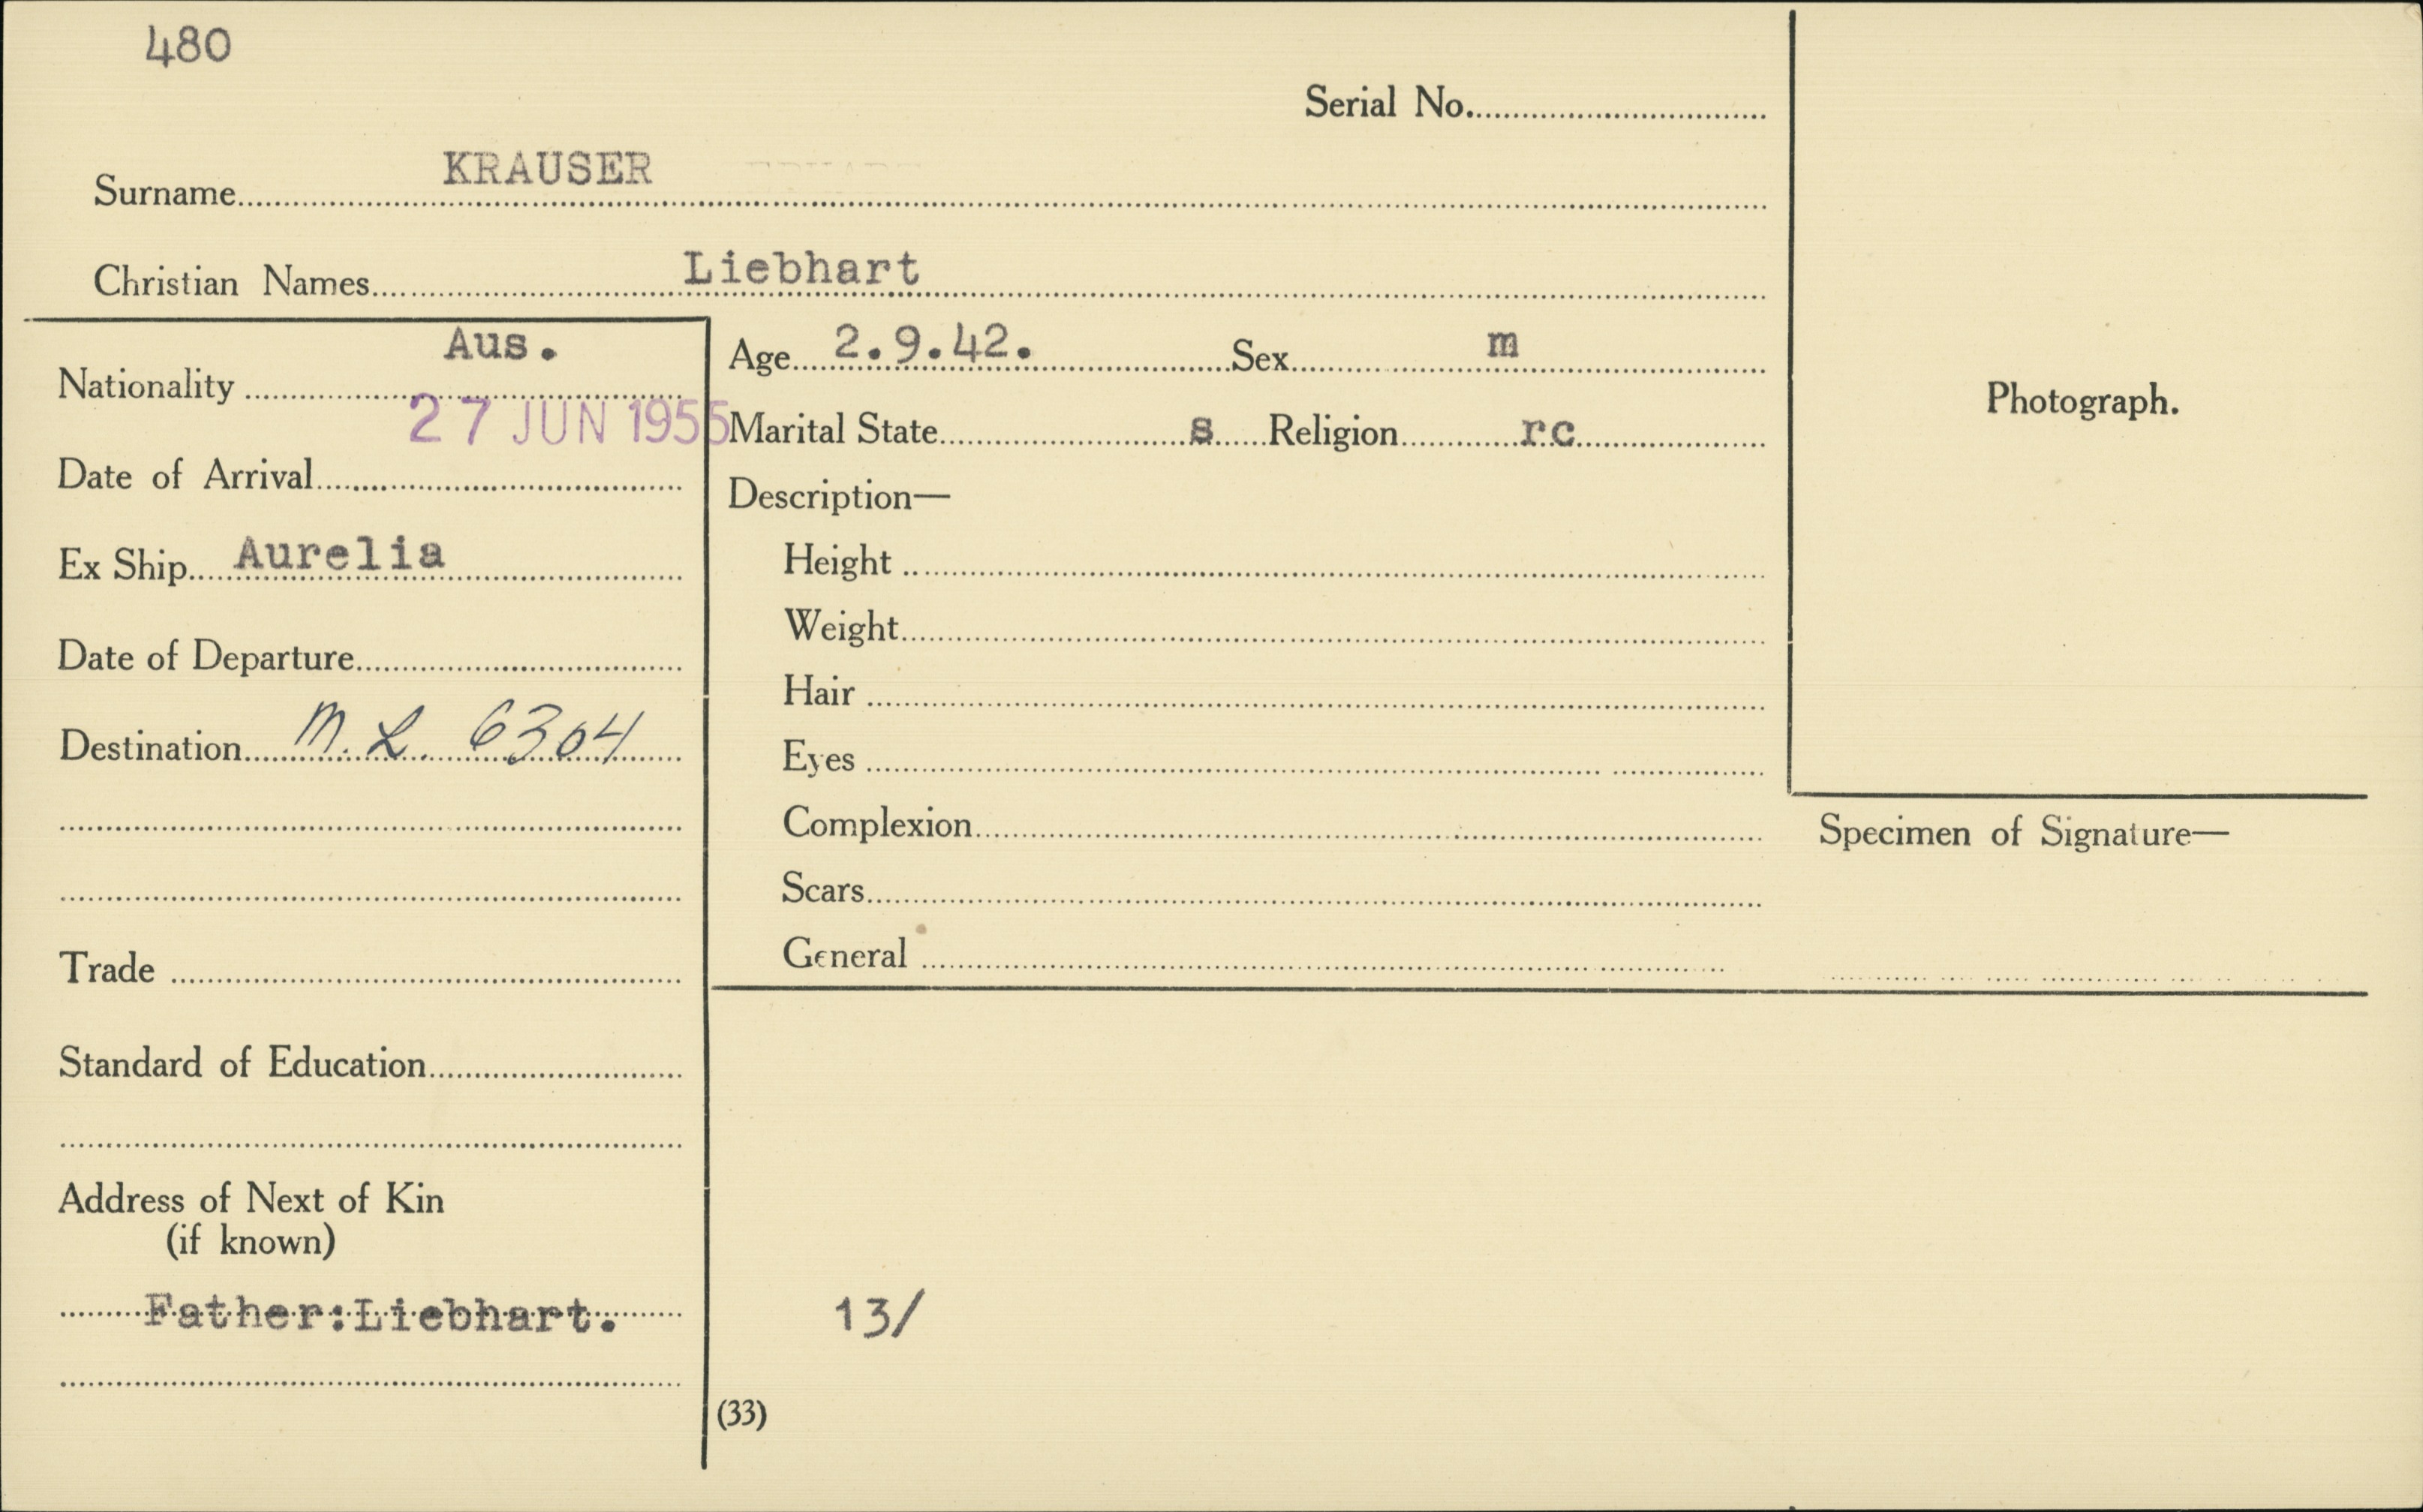 480
Serial No.
Surname KRAUSER
Christian Names Liebhart
Nationality Aus.
27 JUN 1955
Date of Arrival
Ex Ship Aurelia
Date of Departure
Destination M. L. 6304
Trade
Standard of Education
Address of Next of Kin
(if known)
Father:Liebhart.
Age 2.9.42. Sex m
Marital State s Religion rc
Description—
Height
Weight
Hair
Eyes
Complexion
Scars
General
13/
(33)
Photograph.
Specimen of Signature—